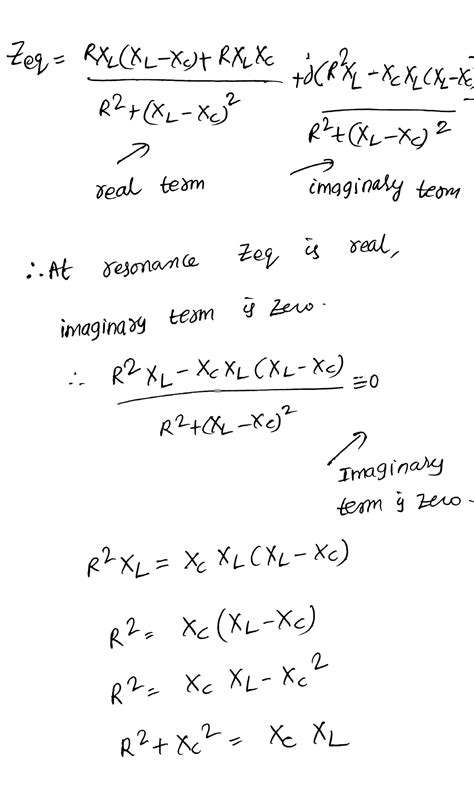 Zeq = RX_L(X_L-X_C)+ RX_LX_C / R²+(X_L-X_C)² + j(R²X_L - X_C X_L(X_L-X_C / R²+(X_L-X_C)²
real term
imaginary term
∴ At resonance Zeq is real,
imaginary term is zero.
∴ R² X_L - X_C X_L (X_L - X_C) / R²+(X_L-X_C)² ≡0
Imaginary
term is zero.
R² X_L = X_C X_L (X_L - X_C)
R² = X_C (X_L-X_C)
R² = X_C X_L - X_C²
R² + X_C² = X_C X_L